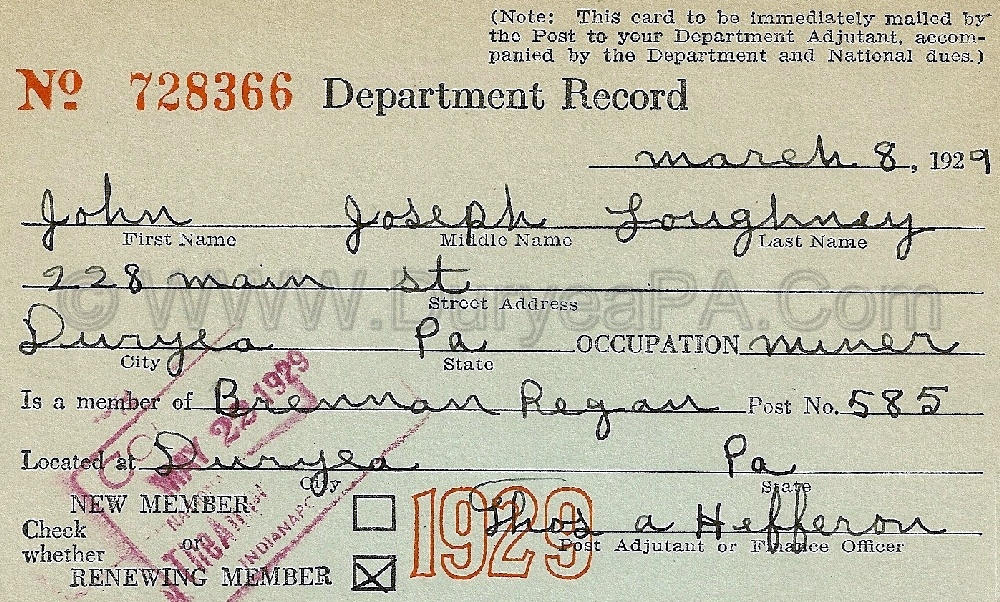 (Note: This card to be immediately mailed by
the Post to your Department Adjutant, accom-
panied by the Department and National dues.)
No 728366 Department Record
march 8, 1929
John Joseph Loughney
First Name Middle Name Last Name
228 main st
Street Address
© WWW.DuryeaPA.Com
Duryea Pa OCCUPATION miner
City State
Is a member of Brennan Regan Post No. 585
MAY 22 1929
Located at Duryea Pa
City State
NEW MEMBER
Check whether or
RENEWING MEMBER
INDIANAPO
1929
Thos a Hefferon
Post Adjutant or Finance Officer